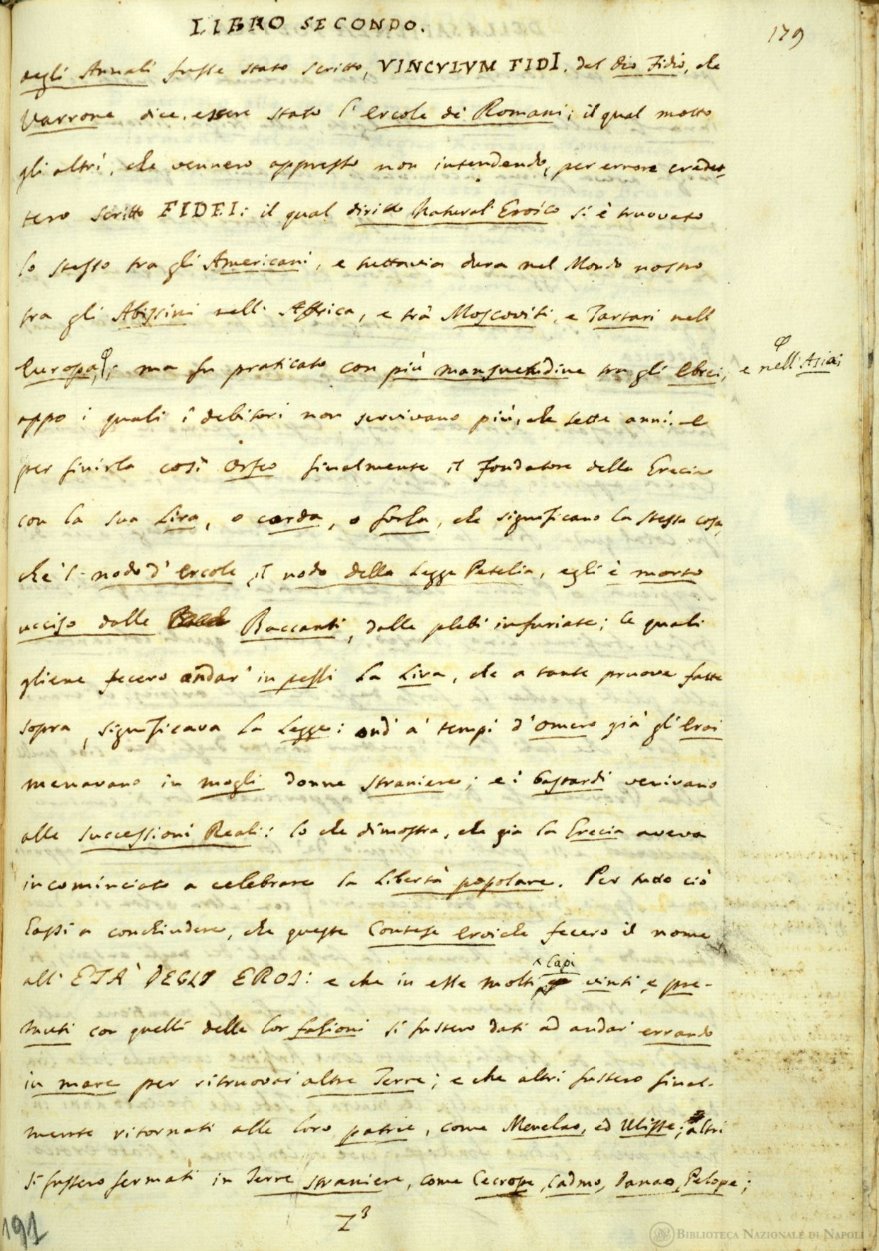 LIBRO SECONDO.
179
negli Annali fusse stato scritto, VINCVLVM FIDI, del dio Fidio, che
Varrone dice, essere stato l'Ercole de' Romani; il qual motto
gli altri, che vennero appresso non intendendo, per errore credet-
tero scritto FIDEI: il qual diritto Natural Eroico si è truovato
lo stesso tra gli Americani, e tuttavia dura nel Mondo nostro
tra gli Abissini nell'Affrica, e tra' Moscoviti, e Tartari nell'
Europa, φ; ma fu praticato con più mansuetudine tra gli Ebrei,
φ
e nell'Asia;
appo i quali i debitori non servivano più, che sette anni. E
per finirla così Orfeo finalmente il fondatore della Grecia
con la sua Lira, o corda, o forza, che significano la stessa cosa,
che 'l nodo d'Ercole, il nodo della Legge Petelia, egli è morto
ucciso dalle Baccanti, dalle plebi infuriate; le quali
gliene fecero andar' in pessi la Lira, che a tante pruove fatte
sopra, significava la Legge: ond' a' tempi d'Omero già gl'Eroi
menavano in mogli donne straniere; e i bastardi venivano
alle successioni Reali: lo che dimostra, che già la Grecia aveva
incominciato a celebrare la Libertà popolare. Per tutto ciò
hassi a conchiudere, che queste Contese eroiche fecero il nome
all'ETA' DEGLI EROI: e che in esse molti
Capi
vinti, e pre-
muti con quelli delle lor fazioni si fussero dati ad andar' errando
in mare per ritruovar' altre Terre; e che altri fussero final-
mente ritornati alle loro patrie, come Menelao, ed Ulisse; altri
si fussero fermati in Terre straniere, come Cecrope, Cadmo, Danao, Pelope;
Z3
191
BIBLIOTECA NAZIONALE DI NAPOLI